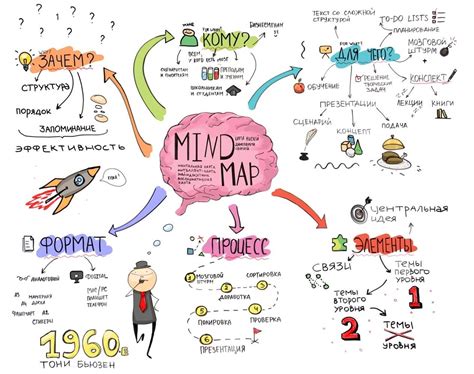 ЗАЧЕМ?
СТРУКТУРА
ПОРЯДОК
ЗАПОМИНАНИЕ
ЭФФЕКТИВНОСТЬ
КОМУ?
БИЗНЕСМЕНАМ
ВСЕМ,
ШКОЛЬНИКАМ
И СТУДЕНТАМ
ПРЕПОДАМ
И УЧЕНЫМ
ДЛЯ ЧЕГО?
ТЕКСТ СО СЛОЖНОЙ
СТРУКТУРОЙ
TO-DO LISTS
ПЛАНИРОВАНИЕ
МОЗГОВОЙ
ШТУРМ
ОБУЧЕНИЕ
РЕШЕНИЕ
ТВОРЧЕСКИХ
ЗАДАЧ
КОНСПЕКТ
ЛЕКЦИИ
КНИГИ
ПРЕЗЕНТАЦИИ
СЦЕНАРИЙ
КОНЦЕПТ
ПОДАЧА
MIND
MAP
МЕНТАЛЬНАЯ КАРТА
ИНТЕЛЛЕКТ-КАРТА
КАРТА МЫСЛЕЙ
ФОРМАТ
АНАЛОГОВЫЙ
МАРКЕРЫ
ДОСКА
ФЛИПЧАРТ
СТИКЕРЫ
ПЛАНШЕТ
ТЕЛЕФОН
1960
ТОНИ БЬЮЗЕН
ПРОЦЕСС
1
МОЗГОВОЙ
ШТУРМ
СОРТИРОВКА
2
3
ДОРАБОТКА
4
5
ПРОВЕРКА
6
ПРЕЗЕНТАЦИЯ
ЭЛЕМЕНТЫ
ЦЕНТРАЛЬНАЯ
ИДЕЯ
СВЯЗИ
ТЕМЫ
ПЕРВОГО
УРОВНЯ
1
ТЕМЫ
ВТОРОГО
УРОВНЯ
2
ТЕМЫ
УРОВНЯ